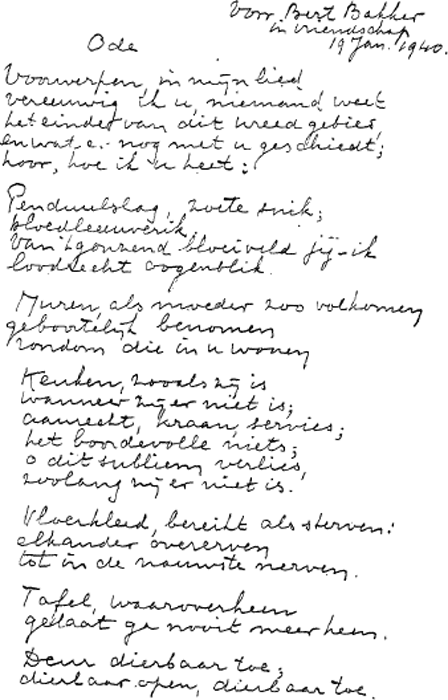 Voor Bert Bakker
in vriendschap
19 Jan. 1940.
Ode
Voorwerpen, in mijn lied
vereeuwig ik u, niemand weet
het einde van dit wreed gebied
en wat er nog met u geschiedt;
hoor, hoe ik u heet:
Pendulslag, zoete snik;
bloedleeuwerik,
van 't gonzend bloeiveld jij-ik
loodrecht oogenblik.
Muren, als moeder zoo volkomen
geboortelijk benomen
rondom die in u wonen
Keuken, zooals zij is
wanneer zij er niet is;
aanrecht, kraan, servies;
het boordevolle niets;
o dit subliem verlies,
zoolang zij er niet is.
Vloerkleed, bereikt als sterven:
elkander overerven
tot in de nauwste nerven.
Tafel, waaroverheen
gelaat ge nooit meer heen.
Deur dierbaar toe;
dierbaar open, dierbaar toe.